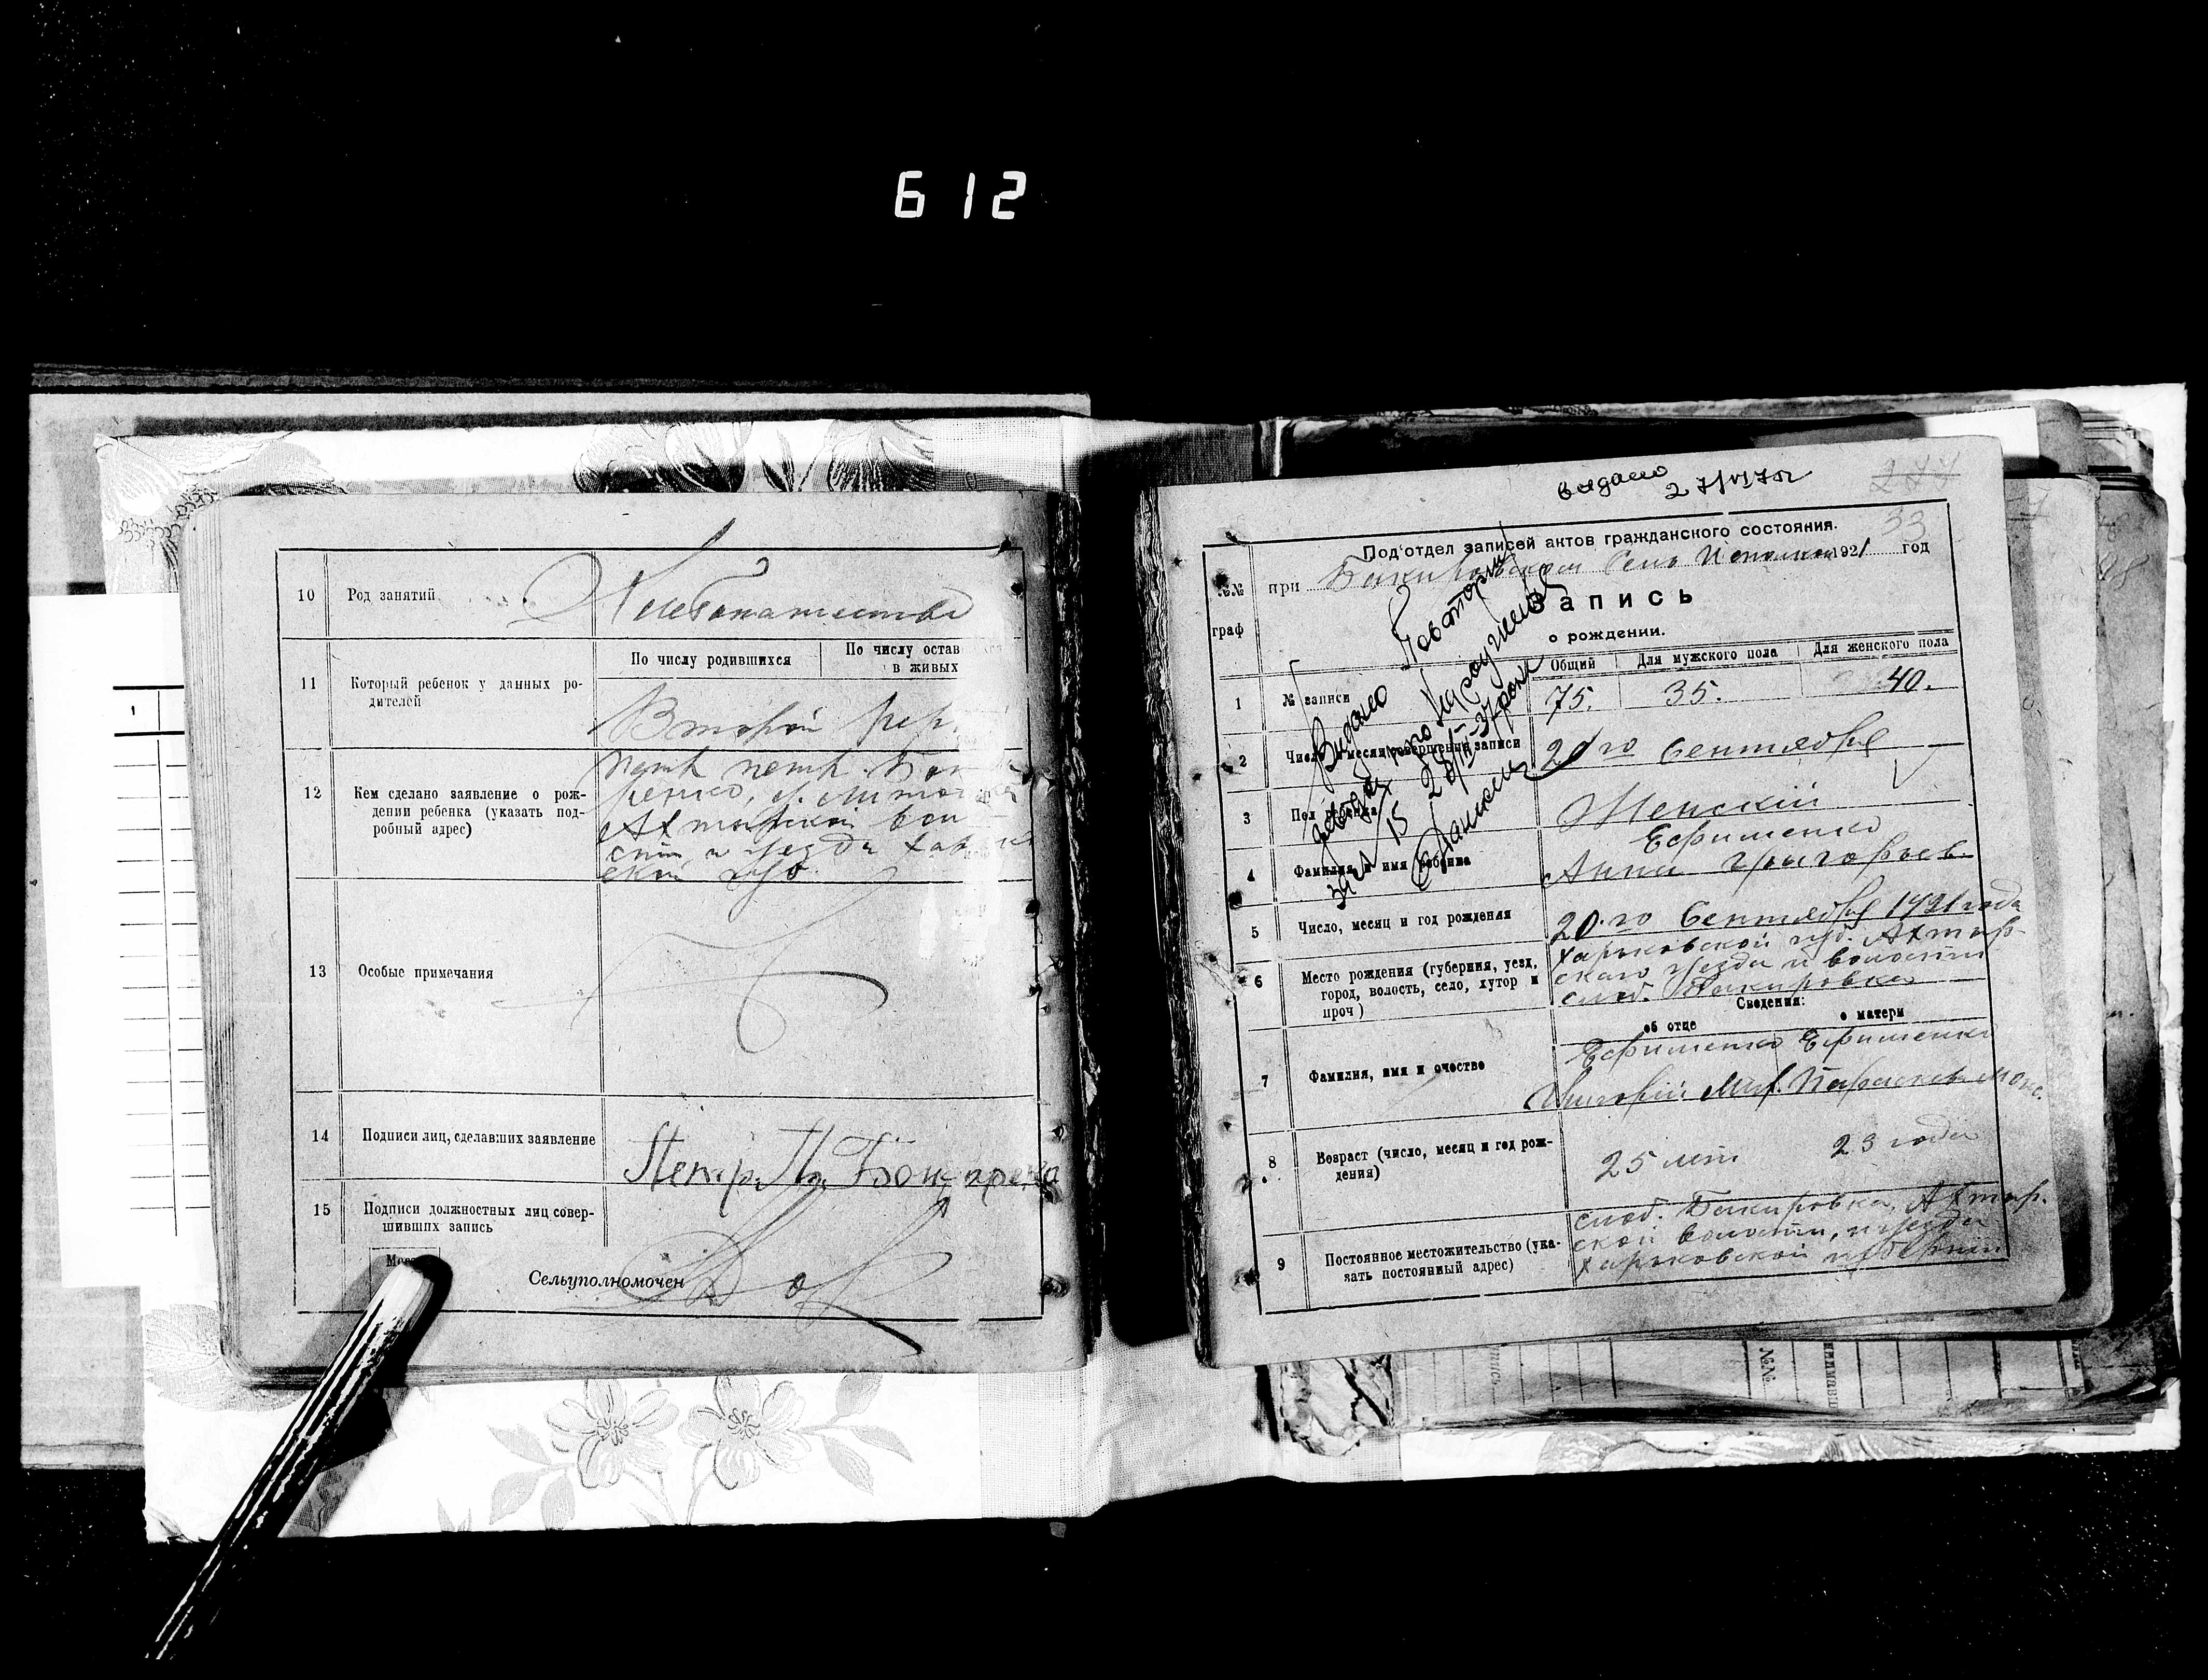 612
10 Род занятий
Хлебопашество
11 Который ребенок у данных ро-
дителей
По числу родившихся
По числу остав
в живых
Второй
12 Кем сделано заявление о рож-
дении ребенка (указать под-
робный адрес)
Петр Петр.
Ахтырской
13 Особые примечания
14 Подписи лиц, сделавших заявление
Петр. П. Бондаренко
15 Подписи должностных лиц совер-
шивших запись
Сельуполномочен
выдано
33
Под'отдел записей актов гражданского состояния.
№№
граф
при Бакировском 1921 год
Запись
о рождении.
Видано повторну
по народження
Общий
Для мужского пола
Для женского пола
1 № записи
75. 35. 40.
2 Число и месяц совершения записи
20 го Сентября
3 Пол ребенка
Женский
4 Фамилия и имя ребенка
Ефименко
Анна Григорьев.
5 Число, месяц и год рождения
20.го Сентября 1921 года
6 Место рождения (губерния, уезд,
город, волость, село, хутор и
проч)
Харьковской губ. Ахтыр-
скаго уезда и волости
слоб. Бакировка
Сведения:
об отце
о матери
7 Фамилия, имя и очество
Ефименко Ефименко
Григорий Параскева
8 Возраст (число, месяц и год рож-
дения)
25 лет 23 года
9 Постоянное местожительство (ука-
зать постоянный адрес)
слоб. Бакировка, Ахтыр.
ской волости, и уезда
Харьковской губернии